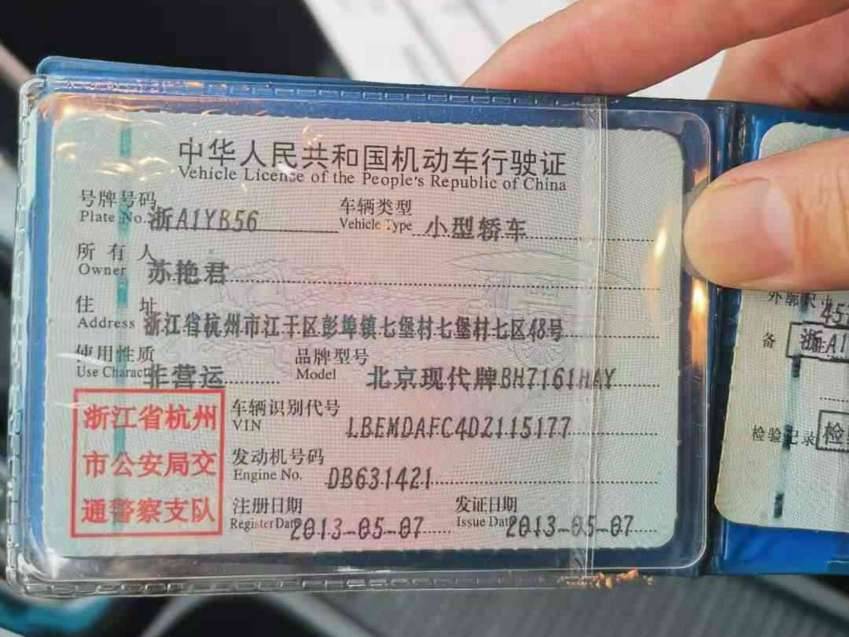 中华人民共和国机动车行驶证
Vehicle License of the People's Republic of China
号牌号码 浙A1YB56 车辆类型 小型轿车
Plate No. Vehicle Type
所有人 苏艳君
Owner
住址 浙江省杭州市江干区彭埠镇七堡村七堡村七区48号
Address
使用性质 非营运 品牌型号 北京现代牌BH7161HAY
Use Charact Model
浙江省杭州
市公安局交
通警察支队
车辆识别代号 LBEMDAFC4DZ115177
VIN
发动机号码 DB631421
Engine No.
注册日期 2013-05-07 发证日期 2013-05-07
Register Dat Issue Dat
外廓尺寸
备 浙A1
检验记录 检